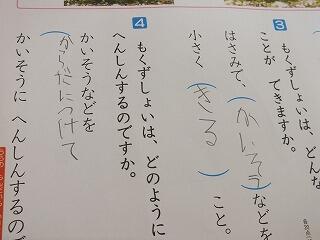 3
もくずしょいは、どんな
ことが できますか。
はさみで、(かいそう)などを
小さく (きる) こと。
4
もくずしょいは、どのように
へんしんするのですか。
かいそうなどを
(からだにつけて
かいそうに へんしんするので